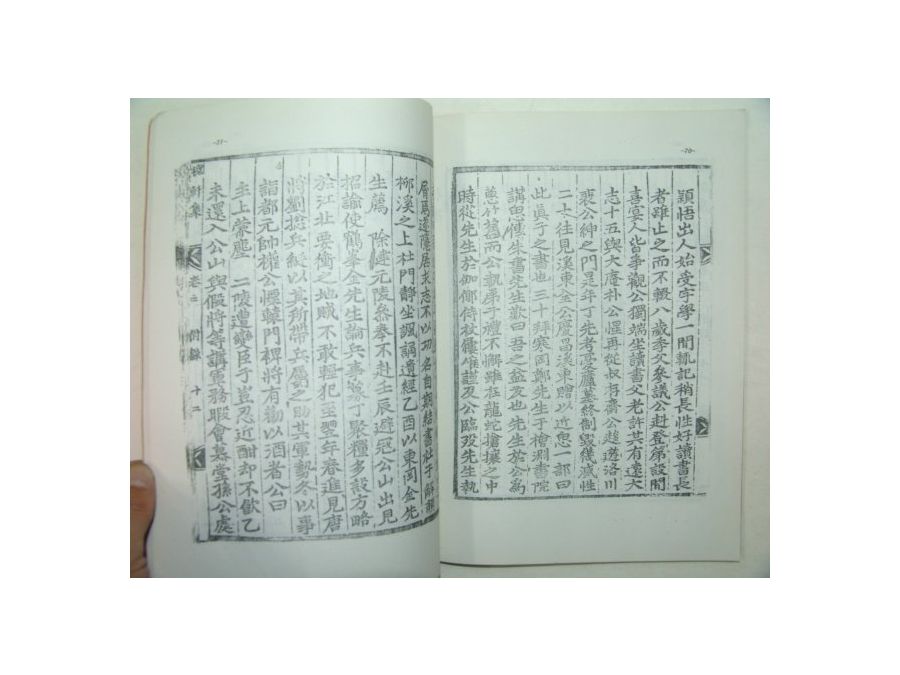 -70-
穎悟出人始受宇學一聞輒記稍長性好讀書長
者雖止之而不輟八歲季父參議公赴登第設聞
喜宴人皆爭觀公獨端坐讀書父老許其有遠大
志十五與大庵朴公惺再從叔存齋公趨遊洛川
裵公紳之門是年丁先考憂廬墓終制毀幾滅性
二十往見溪東金公慶昌溪東贈以近思一部曰
此眞子之書也三十拜寒岡鄭先生于檜淵書院
講思傳朱書先生歎曰吾之益友也先生於公爲
舊而公執弟子禮不懈雖在龍蛇搶攘之中
時從先生於伽倻侍杖屨惟謹及公臨歿先生執
-71-
柳溪之上杜門靜坐諷誦遺經乙酉以東岡金先
生薦 除健元陵參奉不赴壬辰避寇公山出見
招諭使鶴峯金先生論兵事募丁聚糧多設方略
於江北要衝之地賊不敢輕犯至翌年春進見唐
將劉摠兵綎以其所帶兵屬之助其軍勢冬以事
詣都元帥權公慄轅門裨將有勸以酒者公曰
主上蒙塵 二陵遭變臣子豈忍近酣却不飮乙
未還入公山與假將等講軍務暇會慕堂孫公處
卷二 附錄 十二